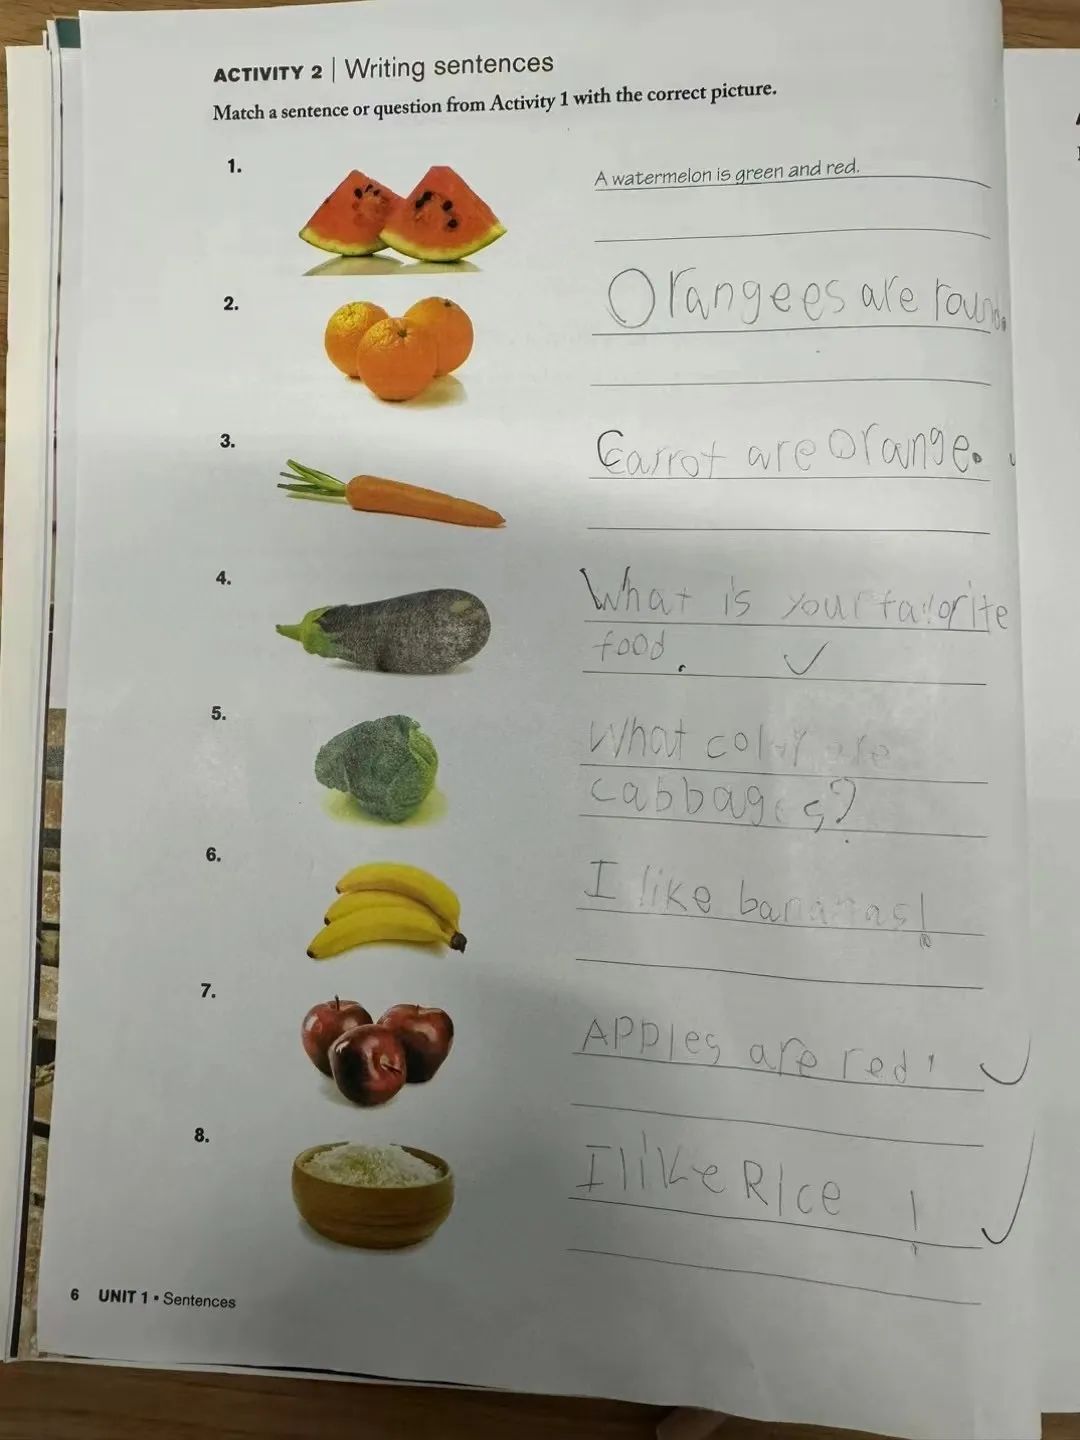 ACTIVITY 2 | Writing sentences
Match a sentence or question from Activity 1 with the correct picture.
1.
A watermelon is green and red.
2.
Orangees are round.
3.
Carrot are orange.
4.
What is your favorite
food.
5.
What color are
cabbages?
6.
I like bananas!
7.
APPles are red!
8.
I like Rice !
6 UNIT 1 • Sentences